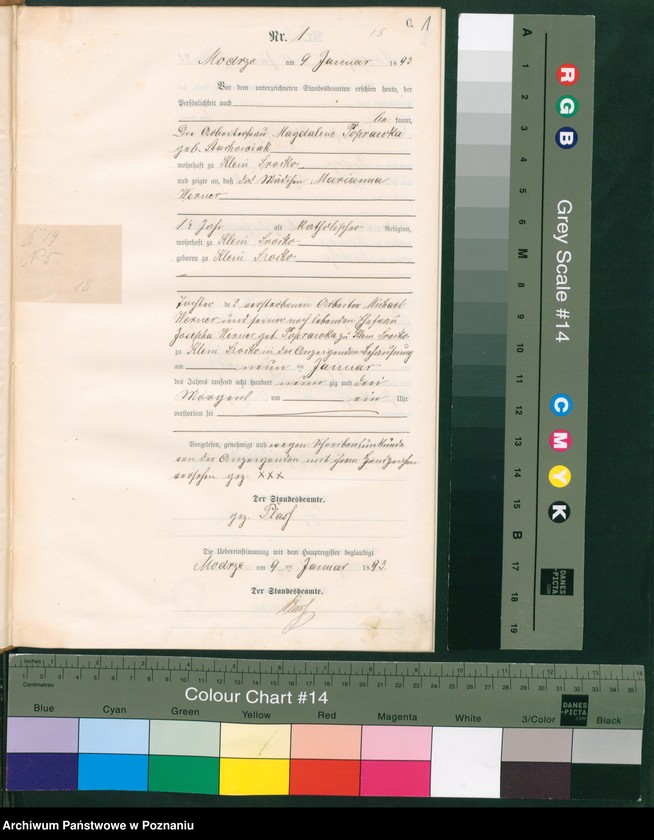 C. 1
Nr. 1
18
Modrze am 9 Januar 1893
Vor dem unterzeichneten Standesbeamten erschien heute, der
Persönlichkeit nach
be kannt,
Die Arbeiterfrau Magdalene Poprawka
geb. Stachowiak
wohnhaft zu Klein Srocko
und zeigte an, daß das Mädchen Marianna
Werner
1½ Jahr alt katholischer Religion,
wohnhaft zu Klein Srocko
geboren zu Klein Srocko
Tochter des verstorbenen Arbeiter Michael
Werner und seiner noch lebenden Ehefrau
Josepha Werner geb. Poprawka zu Klein Srocko
zu Klein Srocko in der Anzeigenden Behausung
am neun ten Januar
des Jahres tausend acht hundert neun zig und drei
Morgens um ein Uhr
verstorben sei
Vorgelesen, genehmigt und wegen Schreibensunkunde
von der Anzeigenden mit ihrem Handzeichen
versehen gez. XXX
Der Standesbeamte.
gez.
Die Uebereinstimmung mit dem Hauptregister beglaubigt
Modrze am 9 ten Januar 1893.
Der Standesbeamte.
19
18
A 1 2 3 4 5 6 M 8 9 10 11 12 13 14 15 B 17 18 19
R G B
Grey Scale #14
C M Y K
DANES-PICTA.COM
Inches
Centimetres
Colour Chart #14
DANES-PICTA.COM
Blue Cyan Green Yellow Red Magenta White 3/Color Black
Archiwum Państwowe w Poznaniu